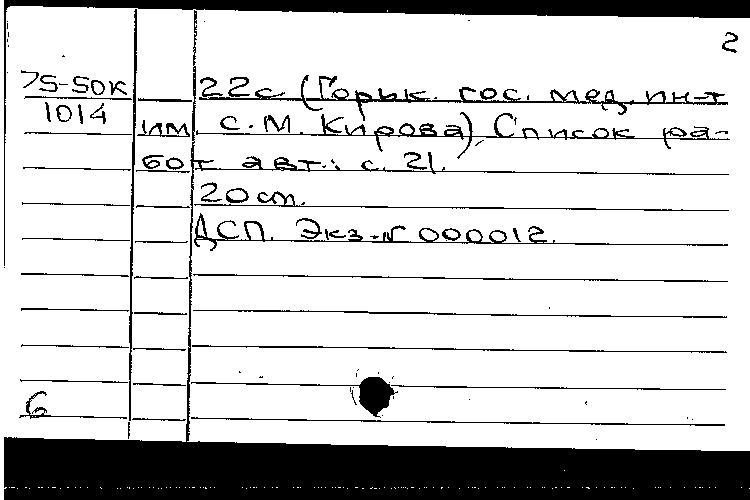 2
75-50К 22с (Горьк. гос. мед. ин-т
1014 им. С. М. Кирова). Список ра-
бот авт.: с. 21.
20 см.
ДСП. Экз. N 000012.
6